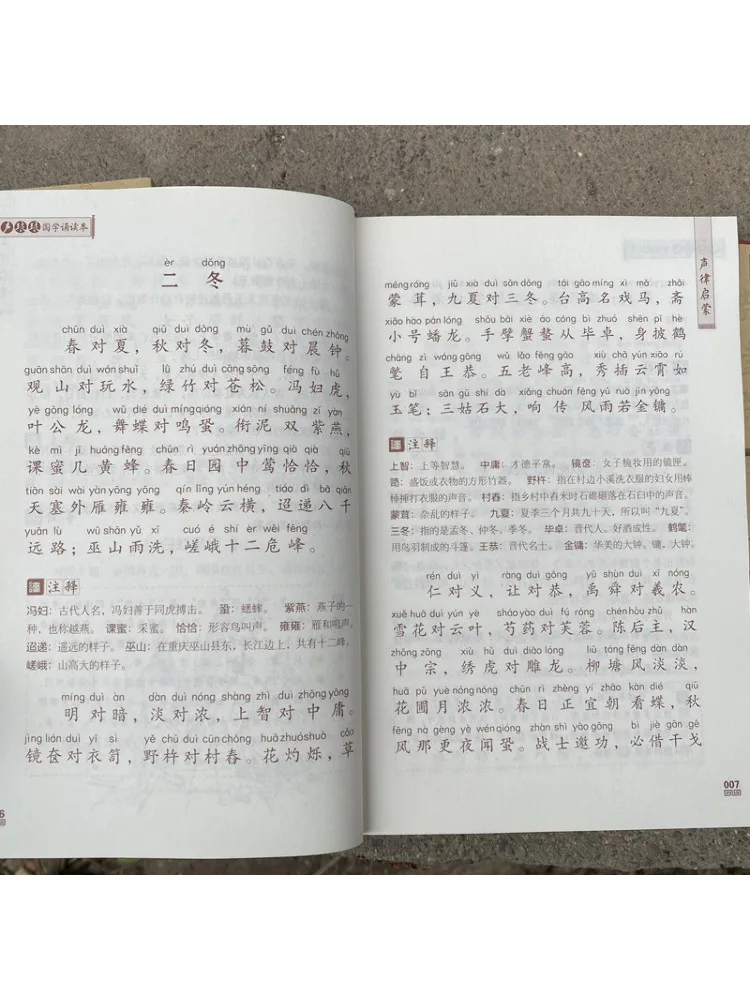 国学诵读本
èr dōng
二 冬
chūn duì xià qiū duì dōng mù gǔ duì chén zhōng
春对夏，秋对冬，暮鼓对晨钟。
guān shān duì wán shuǐ lǜ zhú duì cāng sōng féng fù hǔ
观山对玩水，绿竹对苍松。冯妇虎，
yè gōng lóng wǔ dié duì míng qióng xián ní shuāng zǐ yàn
叶公龙，舞蝶对鸣蛩。衔泥双紫燕，
kè mì jǐ huáng fēng chūn rì yuán zhōng yīng qià qià qiū
课蜜几黄蜂。春日园中莺恰恰，秋
tiān sài wài yàn yōng yōng qín lǐng yún héng tiáo dì bā qiān
天塞外雁雍雍。秦岭云横，迢递八千
yuǎn lù wū shān yǔ xǐ cuó é shí èr wēi fēng
远路；巫山雨洗，嵯峨十二危峰。
注释
冯妇：古代人名，冯妇善于同虎搏击。 蛩：蟋蟀。 紫燕：燕子的一
种，也称越燕。 课蜜：采蜜。 恰恰：形容鸟叫声。 雍雍：雁和鸣声。
迢递：遥远的样子。 巫山：在重庆巫山县东，长江边上，共有十二峰。
嵯峨：山高大的样子。
míng duì àn dàn duì nóng shàng zhì duì zhōng yōng
明对暗，淡对浓，上智对中庸。
jìng lián duì yī sì yě chǔ duì cūn chōng huā zhuó shuò cǎo
镜奁对衣笥，野杵对村舂。花灼烁，草
6
声律启蒙
méng róng jiǔ xià duì sān dōng tái gāo míng xì mǎ zhāi
蒙茸，九夏对三冬。台高名戏马，斋
xiǎo hào pán lóng shǒu bāi xiè áo cóng bì zhuó shēn pī hè
小号蟠龙。手擘蟹螯从毕卓，身披鹤
chǎng zì wáng gōng wǔ lǎo fēng gāo xiù chā yún xiāo rú
氅自王恭。五老峰高，秀插云霄如
yù bǐ sān gū shí dà xiǎng chuán fēng yǔ ruò jīn yōng
玉笔；三姑石大，响传风雨若金镛。
注释
上智：上等智慧。 中庸：才德平常。 镜奁：女子梳妆用的镜匣。
笥：盛饭或衣物的方形竹器。 野杵：指在村边小溪洗衣服的妇女用棒
棒捶打衣服的声音。 村舂：指乡村中舂米时石碓碰落在石臼中的声音。
蒙茸：杂乱的样子。 九夏：夏季三个月共九十天，所以叫“九夏”。
三冬：指的是孟冬、仲冬、季冬。 毕卓：晋代人。好酒成性。 鹤氅：
用鸟羽制成的斗篷。王恭：晋代名士。 金镛：华美的大钟。镛，大钟。
rén duì yì ràng duì gōng yǔ shùn duì xī nóng
仁对义，让对恭，禹舜对羲农。
xuě huā duì yún yè sháo yào duì fú róng chén hòu zhǔ hàn
雪花对云叶，芍药对芙蓉。陈后主，汉
zhōng zōng xiù hǔ duì diāo lóng liǔ táng fēng dàn dàn
中宗，绣虎对雕龙。柳塘风淡淡，
huā pǔ yuè nóng nóng chūn rì zhèng yí zhāo kàn dié qiū
花圃月浓浓。春日正宜朝看蝶，秋
fēng nà gèng yè wén qióng zhàn shì yāo gōng bì jiè gān gē
风那更夜闻蛩。战士邀功，必借干戈
007